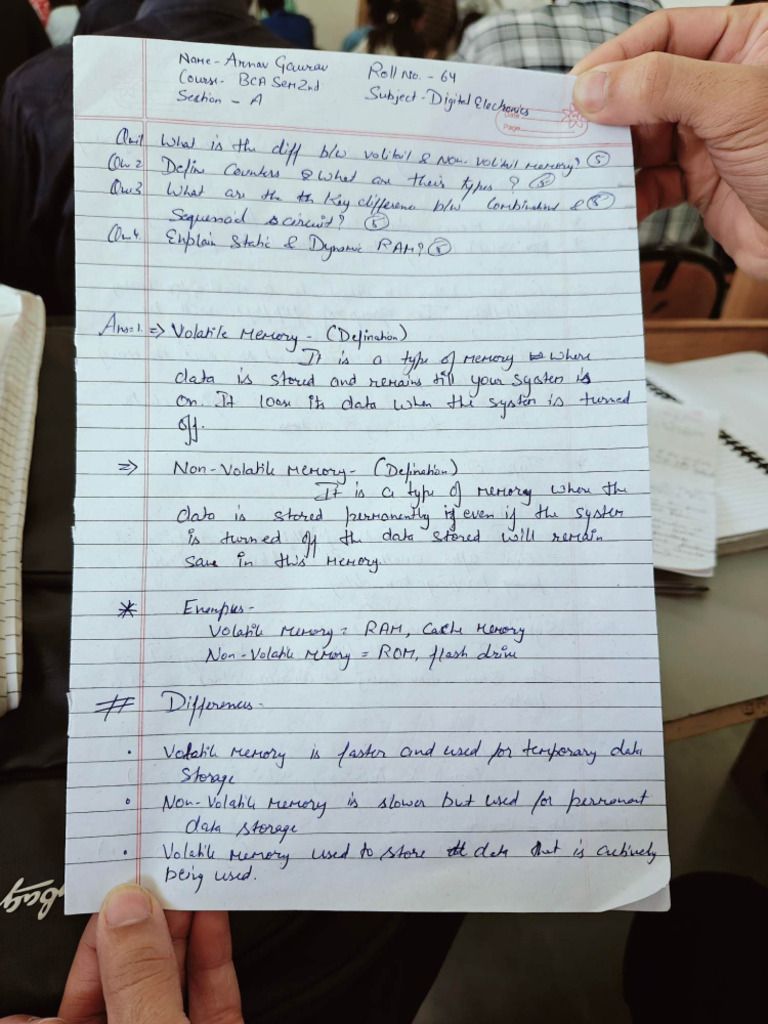 Name - Arnav Gaurav Roll No. - 64
Course - BCA Sem 2nd Subject - Digital Electronics
Section - A
Date
Page
Qu.1 What is the diff b/w volitail & Non-volitail memory? (5)
Qu.2 Define Counters & What are their types? (5)
Qu.3 What are the th Key difference b/w Combinational & (5)
Sequenoid s circuit? (5)
Qu.4 Explain Static & Dynamic RAM? (5)
Ans:1. => Volatile Memory - (Defination)
It is a type of memory where
data is stored and remains till your system is
on. It loose its data when the system is turned
off.
=> Non-Volatile Memory - (Defination)
It is a type of memory where the
data is stored permanently if even if the system
is turned off the data stored will remain
save in this memory.
* Exmples -
Volatile memory = RAM, Cache Memory
Non-Volatile memory = ROM, flash drive
# Differences -
• Volatile memory is faster and used for temporary data
storage
• Non-Volatile memory is slower but used for permanent
data storage
• Volatile memory used to store data that is actively
being used.
Bag